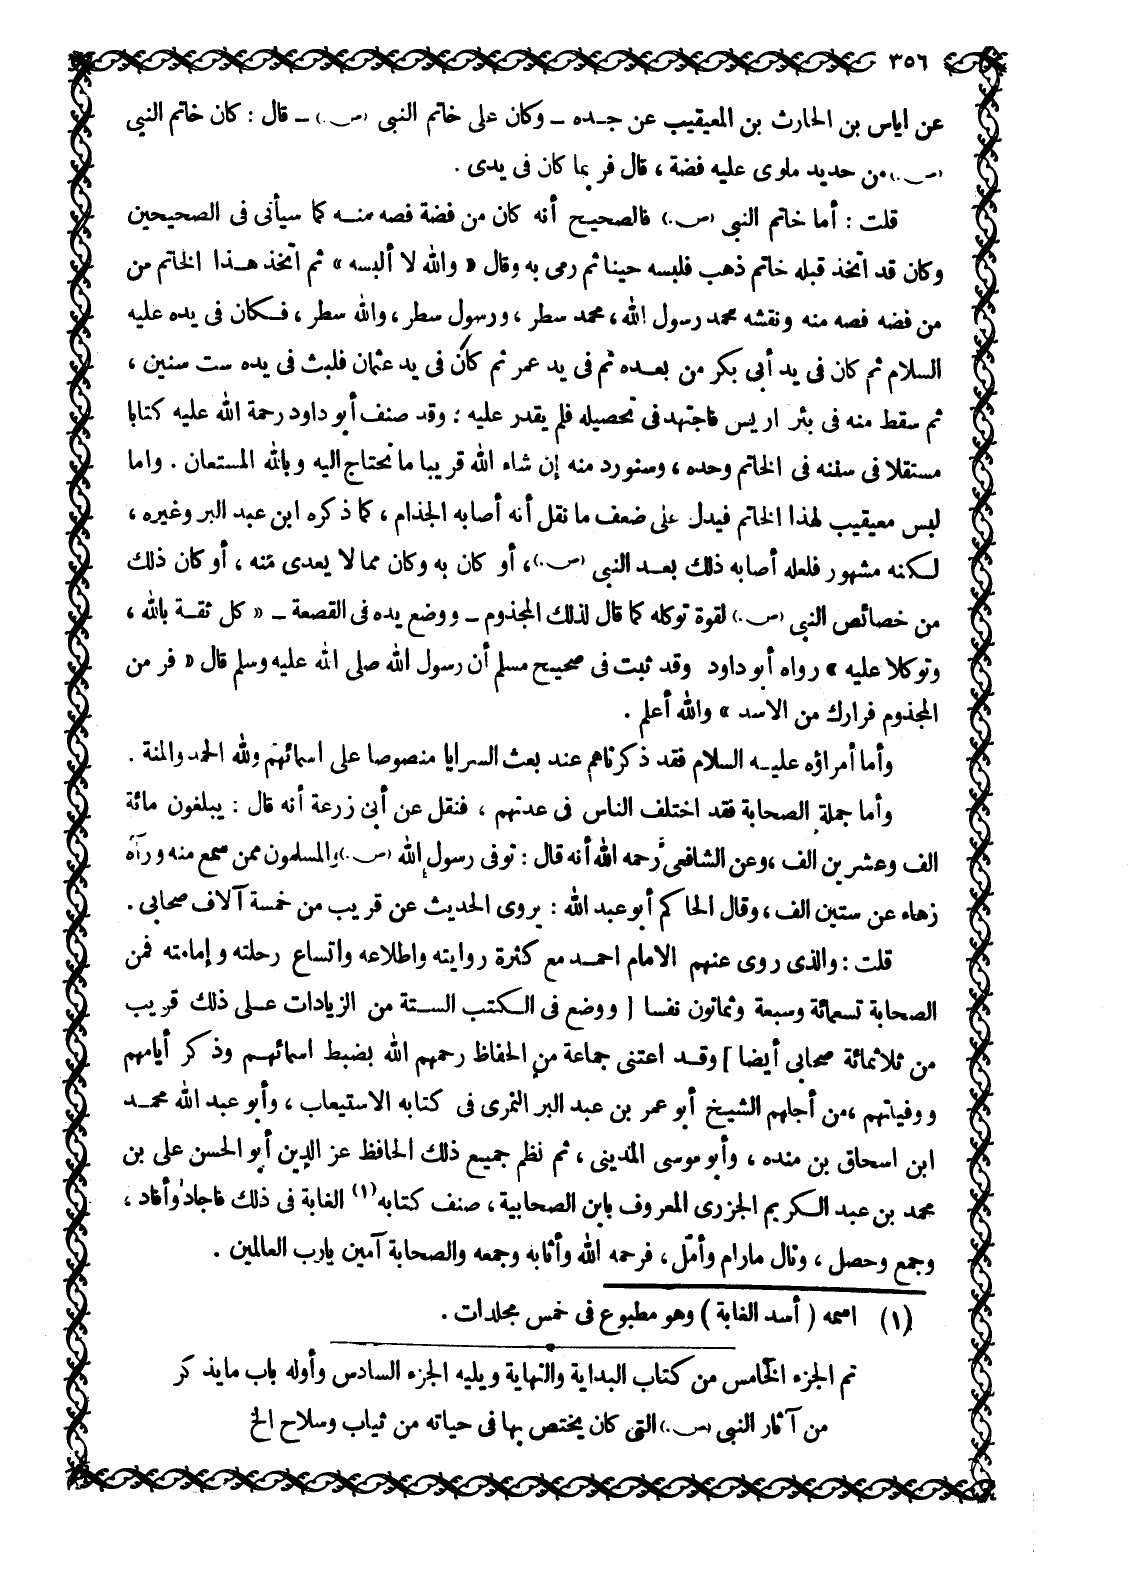 ٣٥٦
عن اياس بن الحارث بن المعيقيب عن جده ــ وكان على خاتم النبى (ص.) ــ قال : كان خاتم النبي
(ص.) من حديد ملوى عليه فضة ، قال فربما كان فى يدى .
قلت : أما خاتم النبى (ص.) فالصحيح أنه كان من فضة فصه منه كما سيأتى فى الصحيحين
وكان قد اتخذ قبله خاتم ذهب فلبسه حينا ثم رمى به وقال « والله لا ألبسه » ثم اتخذ هذا الخاتم من
من فضه فصه منه ونقشه محمد رسول الله ، محمد سطر ، ورسول سطر ، والله سطر ، فكان فى يده عليه
السلام ثم كان فى يد أبى بكر من بعده ثم فى يد عمر ثم كان فى يد عثمان فلبث فى يده ست سنين ،
ثم سقط منه فى بئر اريس فاجتهد فى تحصيله فلم يقدر عليه ؛ وقد صنف أبو داود رحمة الله عليه كتابا
مستقلا فى سننه فى الخاتم وحده ، وسنورد منه إن شاء الله قريبا ما نحتاج اليه وبالله المستعان . واما
لبس معيقيب لهذا الخاتم فيدل على ضعف ما نقل أنه أصابه الجذام ، كما ذكره ابن عبد البر وغيره ،
لكنه مشهور فلعله أصابه ذلك بعد النبى (ص.)، أو كان به وكان مما لا يعدى منه ، أو كان ذلك
من خصائص النبى (ص.) لقوة توكله كما قال لذلك المجذوم ــ ووضع يده فى القصعة ــ « كل ثقة بالله ،
وتوكلا عليه » رواه أبو داود وقد ثبت فى صحيح مسلم أن رسول الله صلى الله عليه وسلم قال « فر من
المجذوم فرارك من الاسد » والله أعلم .
وأما أمراؤه عليه السلام فقد ذكرناهم عند بعث السرايا منصوصا على اسمائهم ولله الحمد والمنة .
وأما جملة الصحابة فقد اختلف الناس فى عدتهم ، فنقل عن أبى زرعة أنه قال : يبلغون مائة
الف وعشرين الف ، وعن الشافعى رحمه الله أنه قال : توفى رسول الله (ص.) والمسلمون ممن سمع منه ورآه
زهاء عن ستين الف ، وقال الحاكم أبو عبد الله : يروى الحديث عن قريب من خمسة آلاف صحابى .
قلت : والذى روى عنهم الامام احمد مع كثرة روايته واطلاعه واتساع رحلته وإمامته فمن
الصحابة تسعمائة وسبعة وثمانون نفسا [ ووضع فى الكتب الستة من الزيادات على ذلك قريب
من ثلاثمائة صحابى أيضا ] وقد اعتنى جماعة من الحفاظ رحمهم الله بضبط اسمائهم وذكر أيامهم
ووفياتهم ، من أجلهم الشيخ أبو عمر بن عبد البر النمرى فى كتابه الاستيعاب ، وأبو عبد الله محمد
ابن اسحاق بن منده ، وأبو موسى المدينى ، ثم نظم جميع ذلك الحافظ عز الدين أبو الحسن على بن
محمد بن عبد الكريم الجزرى المعروف بابن الصحابية ، صنف كتابه (١) الغابة فى ذلك فاجاد وأفاد ،
وجمع وحصل ، ونال مارام وأمّل ، فرحمه الله وأثابه وجمعه والصحابة آمين يارب العالمين .
(١) اسمه ( أسد الغابة ) وهو مطبوع فى خمس مجلدات .
تم الجزء الخامس من كتاب البداية والنهاية ويليه الجزء السادس وأوله باب مايذكر
من آثار النبى (ص.) التى كان يختص بها فى حياته من ثياب وسلاح الخ